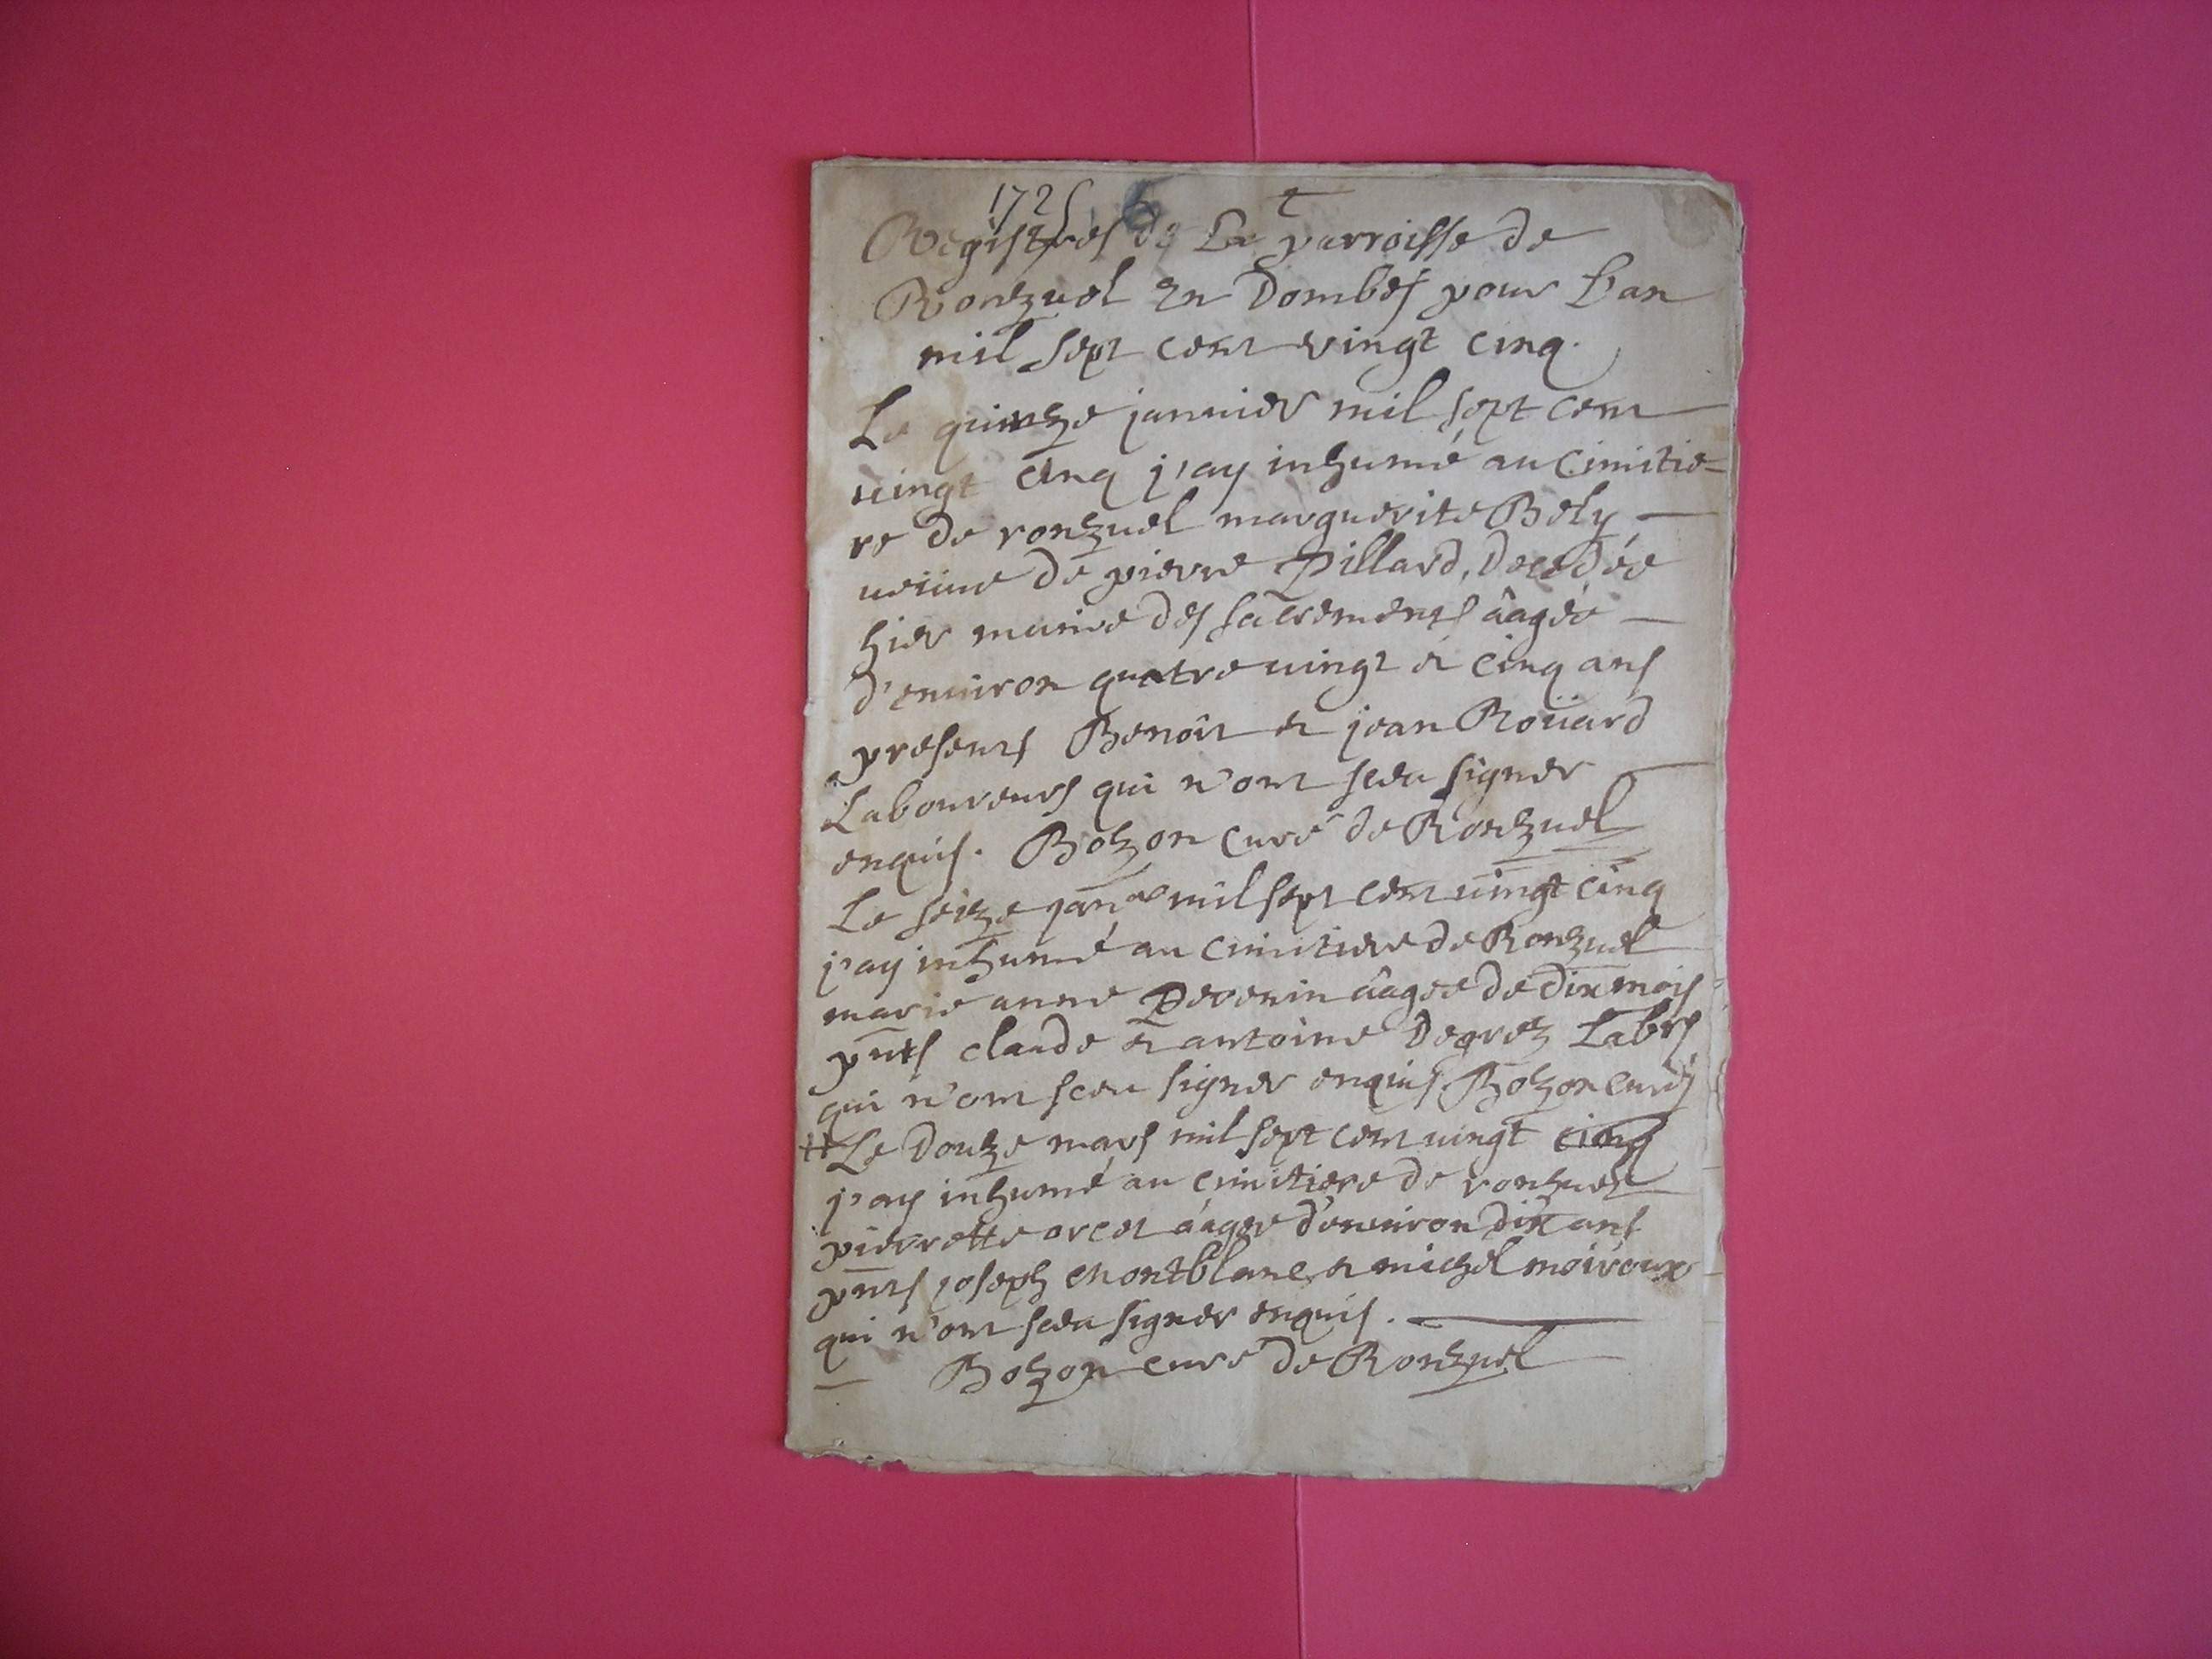 1725 t
Registres de La parroisse de
Ronzuel En Dombes pour L'an
mil sept cent vingt cinq.
Le quinze januier mil sept cent
uingt cinq j'ay inhumé au Cimitie=
re de ronzuel marguerite Bely
ueuue de pierre Pillard, Decedée
hier munie des sacrements âagée
d'enuiron quatre uingt et cinq ans
presents Benoît et jean Roüard
Laboureurs qui n'ont sceu signer
enquis. Bozon Curé de Ronzuel
Le seize janer mil sept cent uingt cinq
j'ay inhumé au cimitiere de Ronzuel
marie anne Peronin âagée de dix mois
pnts claude et antoine Degrez Labrs
qui n'ont sceu signer enquis Bozon curé
Le Douze mars mil sept cent uingt cinq
j'ay inhumé au cimitiere de ronzuel
pierrette orcet âagée d'enuiron dix ans
pnts joseph Montblanc et michel moiroux
qui n'ont sceu signer enquis.
Bozon curé de Ronzuel